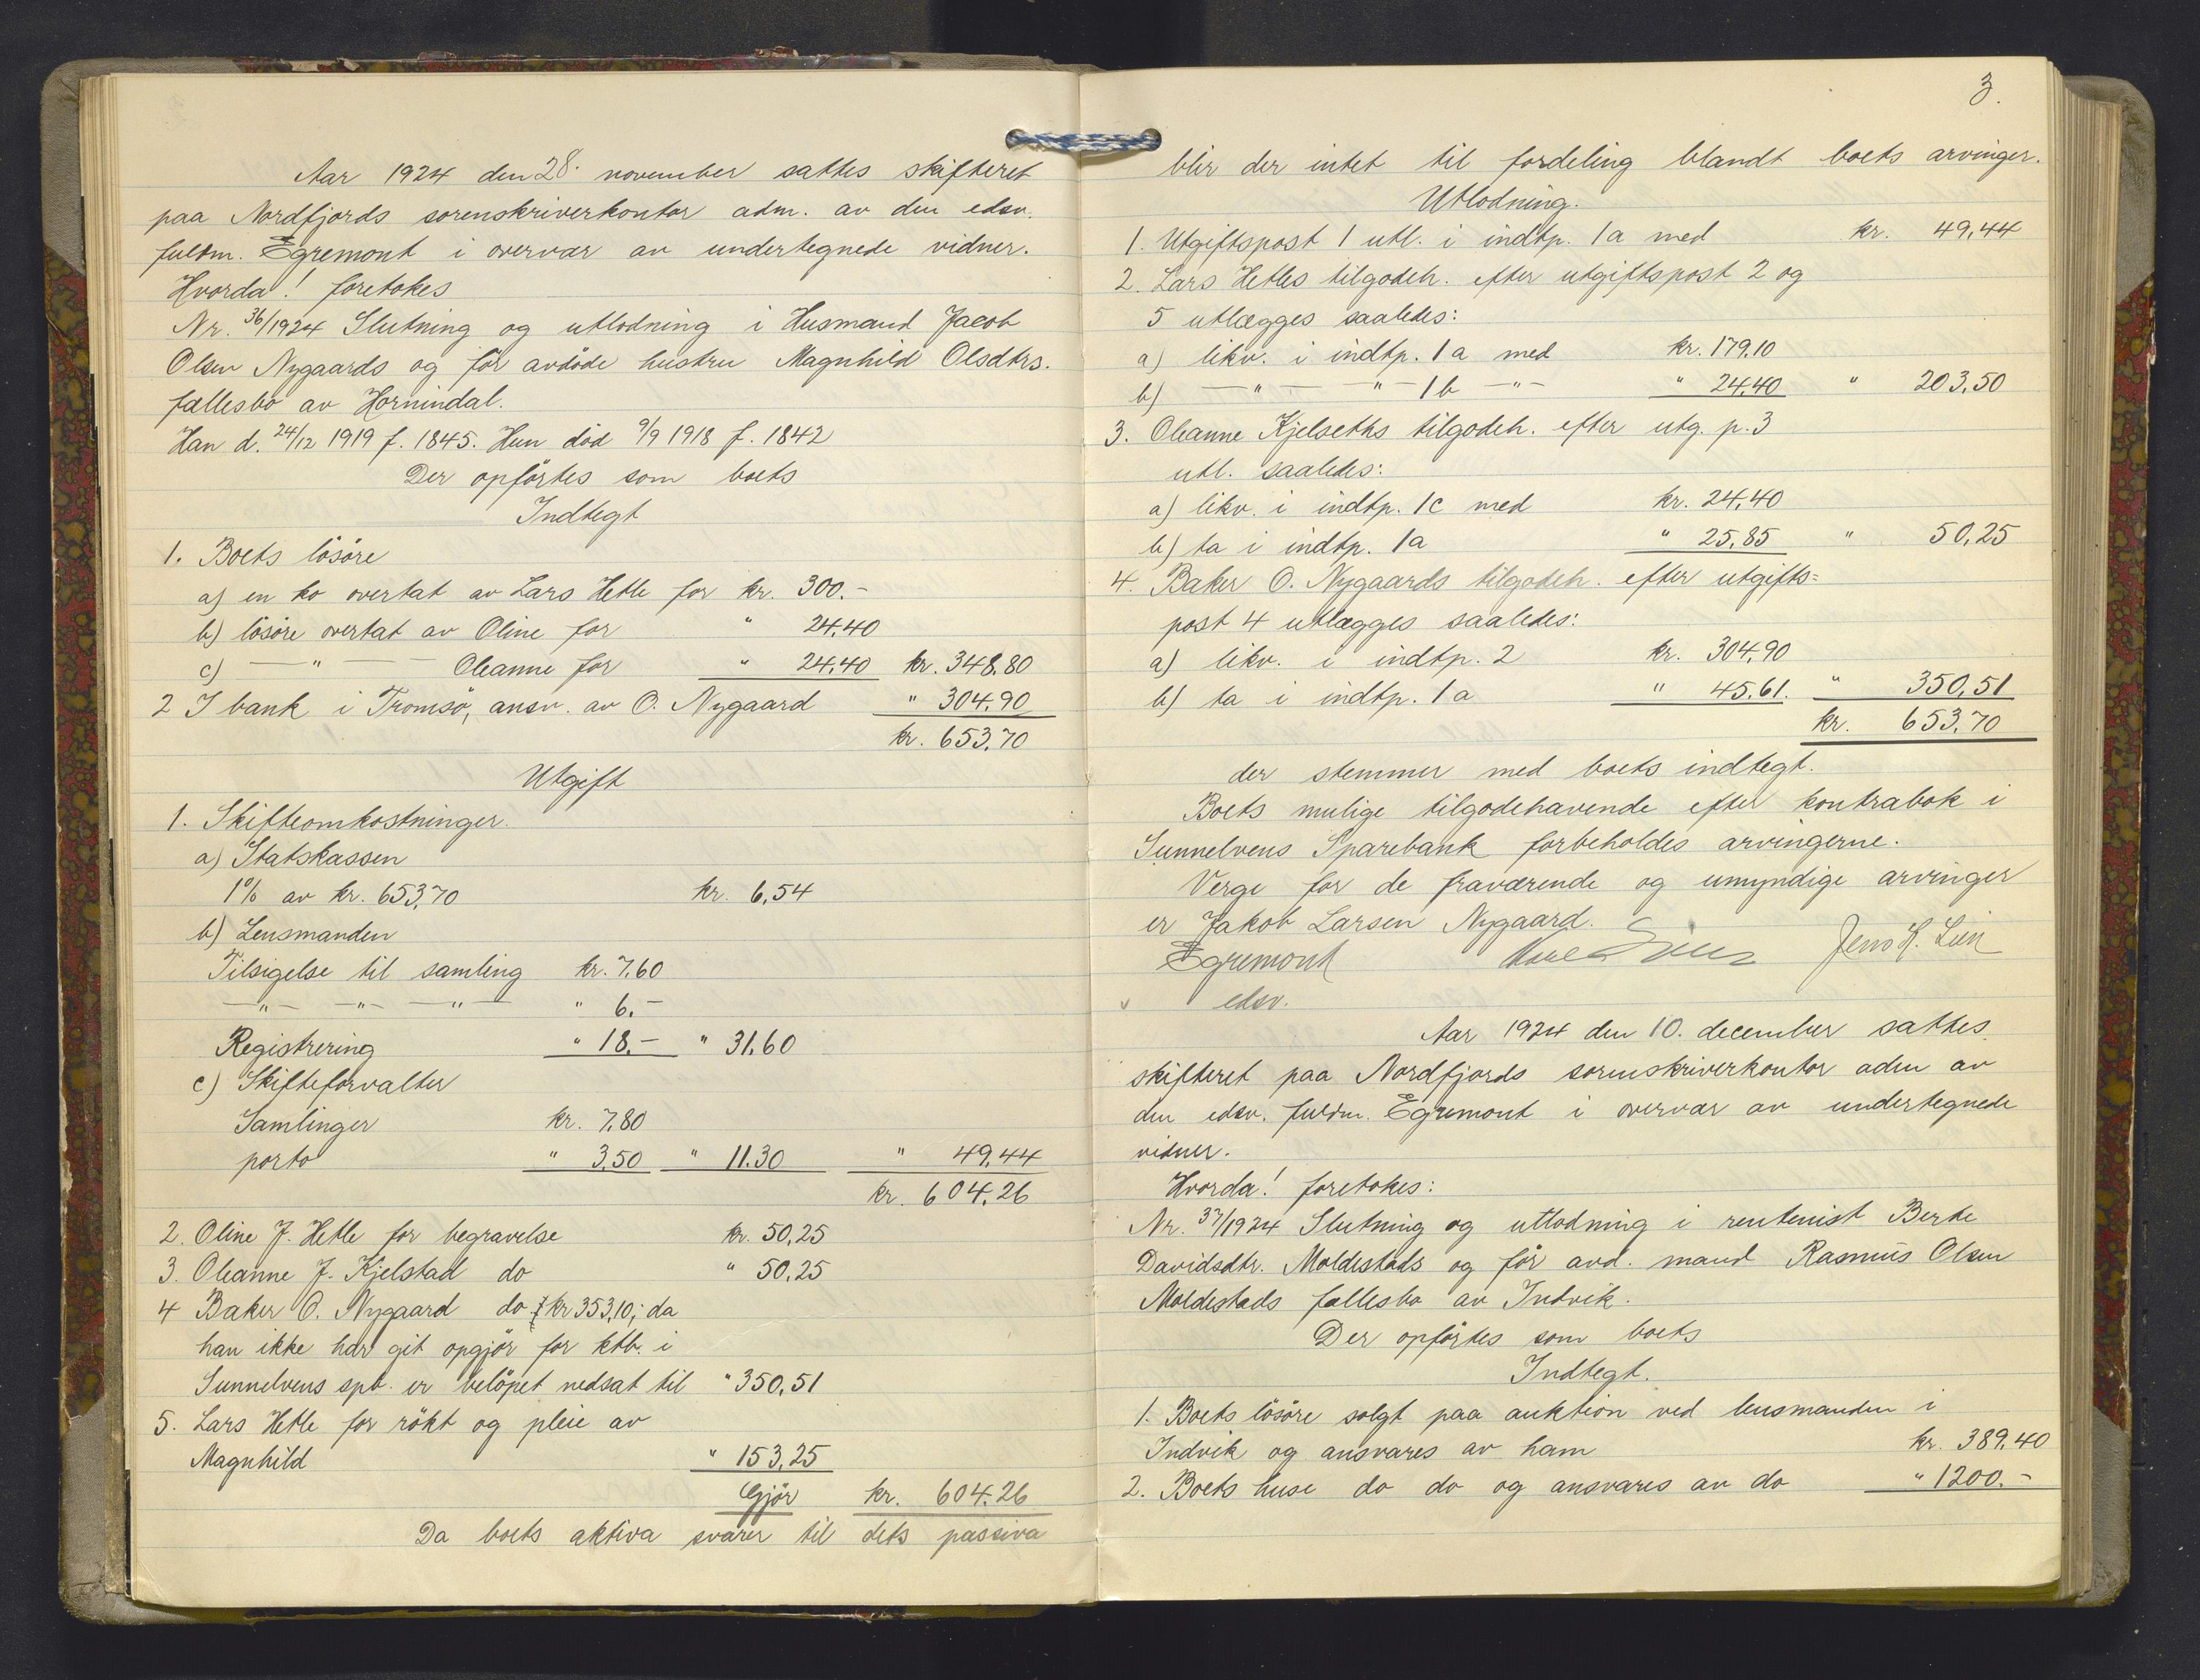 Aar 1924 den 28. november sattes skifteret
paa Nordfjords sorenskriverkontor adm. av den edsv.
fuldm. Egremont i overvær av undertegnede vidner.
Hvorda! foretokes
Nr. 36/1924 Slutning og utlodning i Husmand Jacob
Olsen Nygaards og før avdøde hustru Magnhild Olsdtrs.
fællesbo av Hornindal.
Han d. 24/12 1919 f. 1845. Hun död 9/9 1918 f. 1842
Der opförtes som boets
Indtegt
1. Boets lösöre
a) en ko overtat av Lars Hetle for kr. 300.-
b) lösöre overtat av Oline for " 24,40
c) —"— Oleanne for " 24,40 kr. 348,80
2 I bank i Tromsö, ansv. av O. Nygaard " 304,90
kr. 653,70
Utgift
1. Skifteomkostninger.
a) Statskassen
1% av kr. 653,70 kr. 6,54
b) Lensmanden
Tilsigelse til samling kr. 7,60
—"— —"— —"— " 6.-
Registrering " 18.- " 31,60
c) Skifteforvalter
Samlinger kr. 7,80
porto " 3,50 " 11.30 " 49,44
kr. 604,26
2. Oline J. Hetle for begravelse kr. 50,25
3. Oleanne J. Kjelstad do " 50,25
4 Baker O. Nygaard do kr 353,10; da
han ikke har git opgjör for ktb. i
Sunnelvens spb. er belöpet nedsat til " 350,51
5. Lars Hetle for rökt og pleie av
Magnhild " 153,25
Gjör kr. 604,26
Da boets aktiva svarer til dets passiva
3.
blir der intet til fordeling blandt boets arvinger.
Utlodning.
1. Utgiftspost 1 utl. i indtp. 1a med kr. 49,44
2. Lars Hetles tilgodeh. efter utgiftspost 2 og
5 utlægges saaledes:
a) likv. i indtp. 1a med kr. 179,10
b) —"— —"— 1b —"— " 24,40 " 203,50
3. Oleanne Kjelseths tilgodeh. efter utg. p. 3
utl. saaledes:
a) likv. i indtp. 1c med kr. 24,40
b) ta i indtp. 1a " 25,85 " 50,25
4. Baker O. Nygaards tilgodeh. efter utgifts=
post 4 utlægges saaledes:
a) likv. i indtp. 2 kr. 304,90
b) ta i indtp. 1a " 45,61. " 350,51
kr. 653,70
der stemmer med boets indtegt.
Boets mulige tilgodehavende efter kontrabok i
Sunnelvens Sparebank forbeholdes arvingerne.
Verge for de fraværende og umyndige arvinger
er Jakob Larsen Nygaard.
Egremont Jens H. Lien
edsv.
Aar 1924 den 10. december sattes
skifteret paa Nordfjords sorenskriverkontor adm av
den edsv. fuldm. Egremont i overvær av undertegnede
vidner.
Hvorda! foretokes:
Nr. 37/1924 Slutning og utlodning i rentenist Berte
Davidsdtr. Moldestads og før avd. mand Rasmus Olsen
Moldestads fællesbo av Indvik.
Der opförtes som boets
Indtegt.
1. Boets lösöre solgt paa auktion ved lensmanden i
Indvik og ansvares av ham kr. 389,40
2. Boets huse do do og ansvares av do " 1200.-